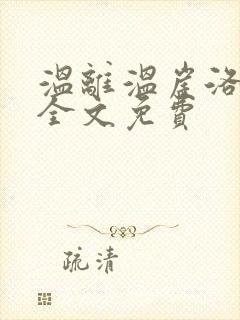 溫離溫崖洛
全文免費
疏清